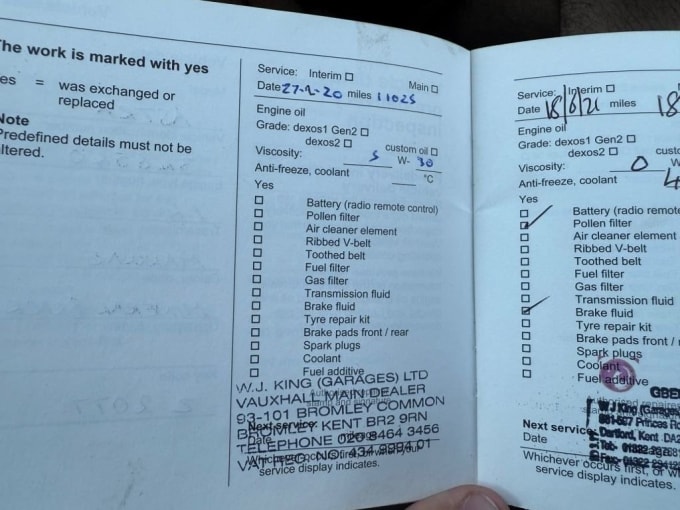 The work is marked with yes
es = was exchanged or
replaced
Note
Predefined details must not be
altered.
Service: Interim ☐ Main ☐
Date 27-2-20 miles 11025
Engine oil
Grade: dexos1 Gen2 ☐
dexos2 ☐ custom oil ☐
Viscosity: 5 W- 30
Anti-freeze, coolant °C
Yes
☐ Battery (radio remote control)
☐ Pollen filter
☐ Air cleaner element
☐ Ribbed V-belt
☐ Toothed belt
☐ Fuel filter
☐ Gas filter
☐ Transmission fluid
☐ Brake fluid
☐ Tyre repair kit
☐ Brake pads front / rear
☐ Spark plugs
☐ Coolant
☐ Fuel additive
W.J. KING (GARAGES) LTD
VAUXHALL MAIN DEALER
93-101 BROMLEY COMMON
BROMLEY KENT BR2 9RN
TELEPHONE 020 8464 3456
VAT REG. NO. 434 9994 01
Next service:
Date
Whichever occurs first, or when your
service display indicates.
Service: Interim ☐
Date 18/6/21 miles 18
Engine oil
Grade: dexos1 Gen2 ☐
dexos2 ☐ custo
Viscosity: 0 W-
Anti-freeze, coolant
Yes
☐ Battery (radio remote
☑ Pollen filter
☐ Air cleaner element
☐ Ribbed V-belt
☐ Toothed belt
☐ Fuel filter
☐ Gas filter
☐ Transmission fluid
☑ Brake fluid
☐ Tyre repair kit
☐ Brake pads front /
☐ Spark plugs
☐ Coolant
☐ Fuel additive
W J King (Garages
Princes Ro
Dartford, Kent DA2
Next service:
Date
Whichever occurs first, or w
service display indicates.